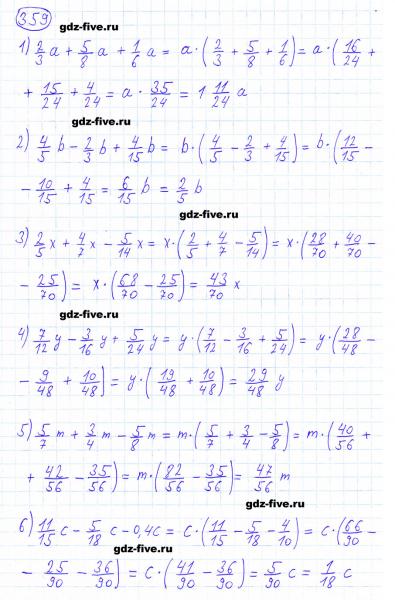 359
gdz-five.ru
1) 2/3 a + 5/8 a + 1/6 a = a·(2/3 + 5/8 + 1/6) = a·(16/24 +
+ 15/24 + 4/24 = a · 35/24 = 1 11/24 a
gdz-five.ru
2) 4/5 b - 2/3 b + 4/15 b = b·(4/5 - 2/3 + 4/15) = b·(12/15 -
- 10/15 + 4/15 = 6/15 b = 2/5 b
gdz-five.ru
3) 2/5 x + 4/7 x - 5/14 x = x·(2/5 + 4/7 - 5/14) = x·(28/70 + 40/70 -
- 25/70) = x·(68/70 - 25/70) = 43/70 x
gdz-five.ru
4) 7/12 y - 3/16 y + 5/24 y = y·(7/12 - 3/16 + 5/24) = y·(28/48 -
- 9/48 + 10/48) = y·(19/48 + 10/48) = 29/48 y
gdz-five.ru
5) 5/7 m + 3/4 m - 5/8 m = m·(5/7 + 3/4 - 5/8) = m·(40/56 +
+ 42/56 - 35/56) = m·(82/56 - 35/56) = 47/56 m
gdz-five.ru
6) 11/15 c - 5/18 c - 0,4c = c·(11/15 - 5/18 - 4/10) = c·(66/90 -
gdz-five.ru
- 25/90 - 36/90) = c·(41/90 - 36/90) = 5/90 c = 1/18 c